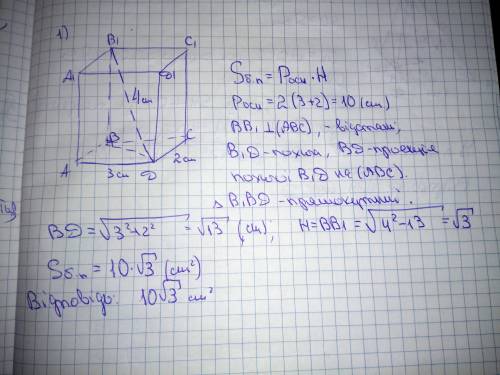 1)
B₁
C₁
A₁
D₁
4см
B
C
A
3 см
D
2см
Sб.п = Pосн · H
Pосн = 2(3+2) = 10 (см)
BB₁ ⊥ (ABC), -
B₁D - похила, BD - проекція
похилої B₁D на (ABC).
△ B₁BD - прямокутний.
BD = √3²+2² = √13 (см); H = BB₁ = √4²-13 = √3
Sб.п = 10·√3 (см²)
Відповідь: 10√3 см²